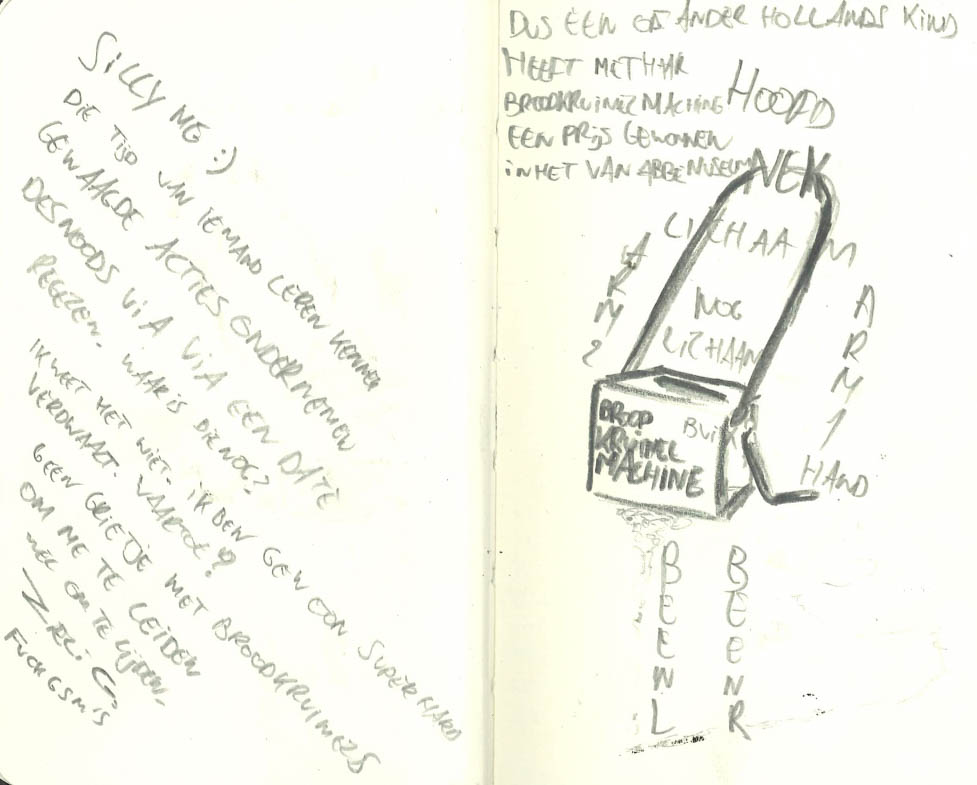 SILLY ME :)
DIE TIJD VAN IEMAND LEREN KENNEN
GEWAAGDE ACTIES ONDERNEMEN
DESNOODS VIA VIA EEN DATE
REGELEN. WAAR IS DIE NOG?
IK WEET HET NIET. IK BEN GEWOON SUPERHARD
VERDWAALD. VAARTOE?
GEEN GRIETJE MET BROODKRUIMELS
OM ME TE LEIDEN
WEL OM TE LIJDEN.
FUCK GSM'S
DUS EEN OF ANDER HOLLANDS KIND
HEEFT MET HAAR
BROODKRUIMEL MACHINE
EEN PRIJS GEWONNEN
IN HET VAN ABBEMUSEUM
HOOFD
NEK
LICHAAM
NOG
LICHAAM
ARM 2
ARM 1
BROOD
KRUIMEL
MACHINE
BUIK
HAND
BEEN L
BEEN R